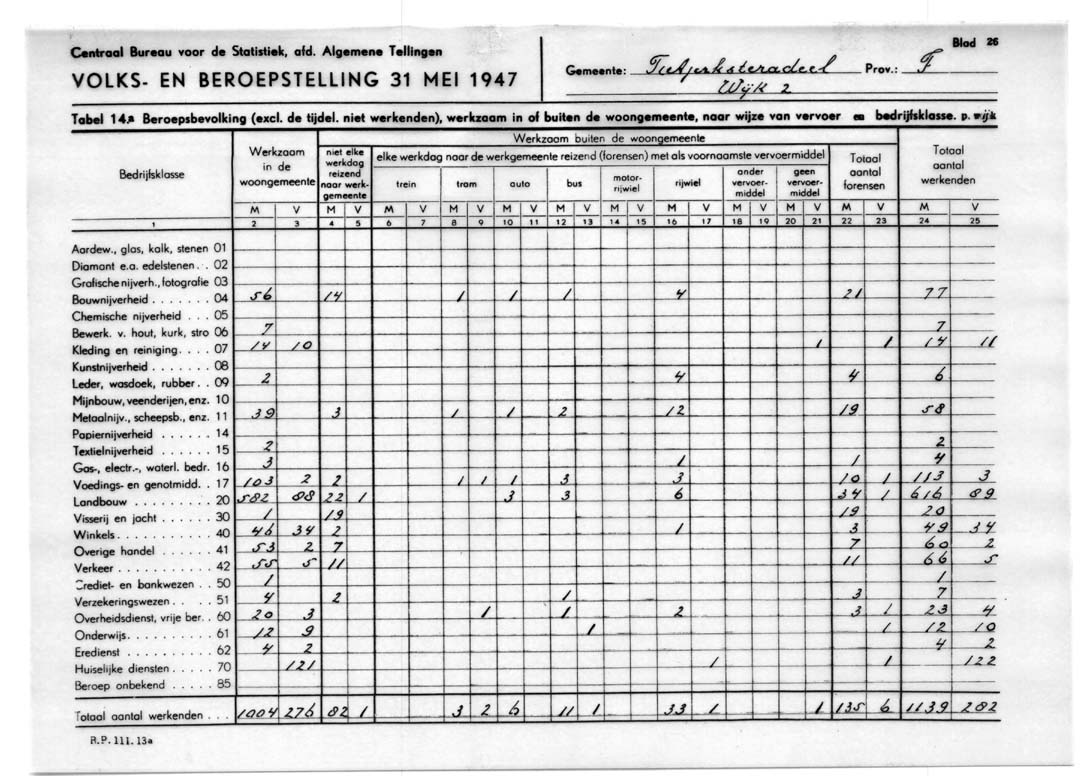 Centraal Bureau voor de Statistiek, afd. Algemene Tellingen
Blad 26
VOLKS- EN BEROEPSTELLING 31 MEI 1947
Gemeente: Tietjerksteradeel Prov.: F
Wijk 2
Tabel 14.a Beroepsbevolking (excl. de tijdel. niet werkenden), werkzaam in of buiten de woongemeente, naar wijze van vervoer en bedrijfsklasse. p. wijk
Bedrijfsklasse
Werkzaam in de woongemeente
Werkzaam buiten de woongemeente
niet elke werkdag reizend naar werkgemeente
elke werkdag naar de werkgemeente reizend (forensen) met als voornaamste vervoermiddel
trein tram auto bus motorrijwiel rijwiel ander vervoermiddel geen vervoermiddel
Totaal aantal forensen
Totaal aantal werkenden
M V M V M V M V M V M V M V M V M V M V M V M V
1 2 3 4 5 6 7 8 9 10 11 12 13 14 15 16 17 18 19 20 21 22 23 24 25
Aardew., glas, kalk, stenen 01
Diamant e.a. edelstenen . . 02
Grafische nijverh., fotografie 03
Bouwnijverheid . . . . . . . 04 56 14 1 1 1 4 21 77
Chemische nijverheid . . . 05
Bewerk. v. hout, kurk, stro 06 7 7
Kleding en reiniging. . . . 07 14 10 1 1 14 11
Kunstnijverheid . . . . . . . 08
Leder, wasdoek, rubber. . 09 2 4 4 6
Mijnbouw, veenderijen, enz. 10
Metaalnijv., scheepsb., enz. 11 39 3 1 1 2 12 19 58
Papiernijverheid . . . . . . 14
Textielnijverheid . . . . . . 15 2 2
Gas-, electr.-, waterl. bedr. 16 3 1 1 4
Voedings- en genotmidd. . 17 103 2 2 1 1 1 3 3 10 1 113 3
Landbouw . . . . . . . . . 20 582 88 22 1 3 3 6 34 1 616 89
Visserij en jacht . . . . . . 30 1 19 19 20
Winkels. . . . . . . . . . . 40 46 34 2 1 3 49 34
Overige handel . . . . . . 41 53 2 7 7 60 2
Verkeer . . . . . . . . . . 42 55 5 11 11 66 5
Crediet- en bankwezen . . 50 1 1
Verzekeringswezen. . . . . 51 4 2 1 3 7
Overheidsdienst, vrije ber. . 60 20 3 1 1 2 3 1 23 4
Onderwijs. . . . . . . . . . 61 12 9 1 1 12 10
Eredienst . . . . . . . . . 62 4 2 4 2
Huiselijke diensten . . . . . 70 121 1 1 122
Beroep onbekend . . . . . 85
Totaal aantal werkenden . . . 1004 276 82 1 3 2 6 11 1 33 1 1 135 6 1139 282
R.P. 111. 13a